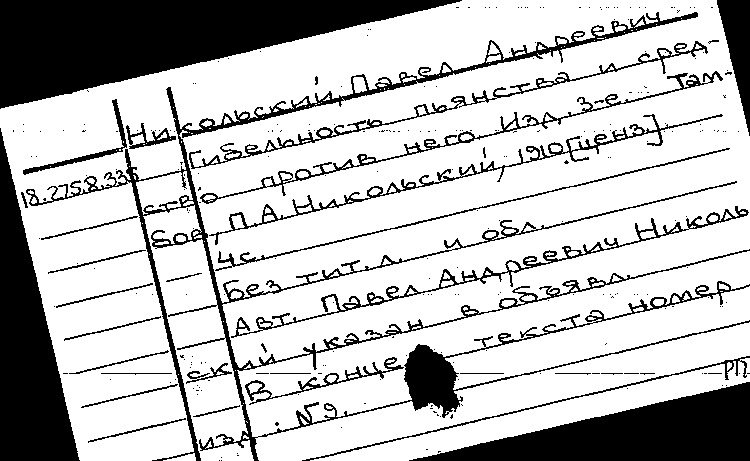 Никольский, Павел Андреевич
Гибельность пьянства и сред-
18.275.8.335 ство против него. Изд. 3-е. Там-
бов, П.А. Никольский, 1910.[ценз.].
4с.
Без тит.л. и обл.
Авт. Павел Андреевич Николь
ский указан в объявл.
В конце текста номер
изд.: №9.
РП